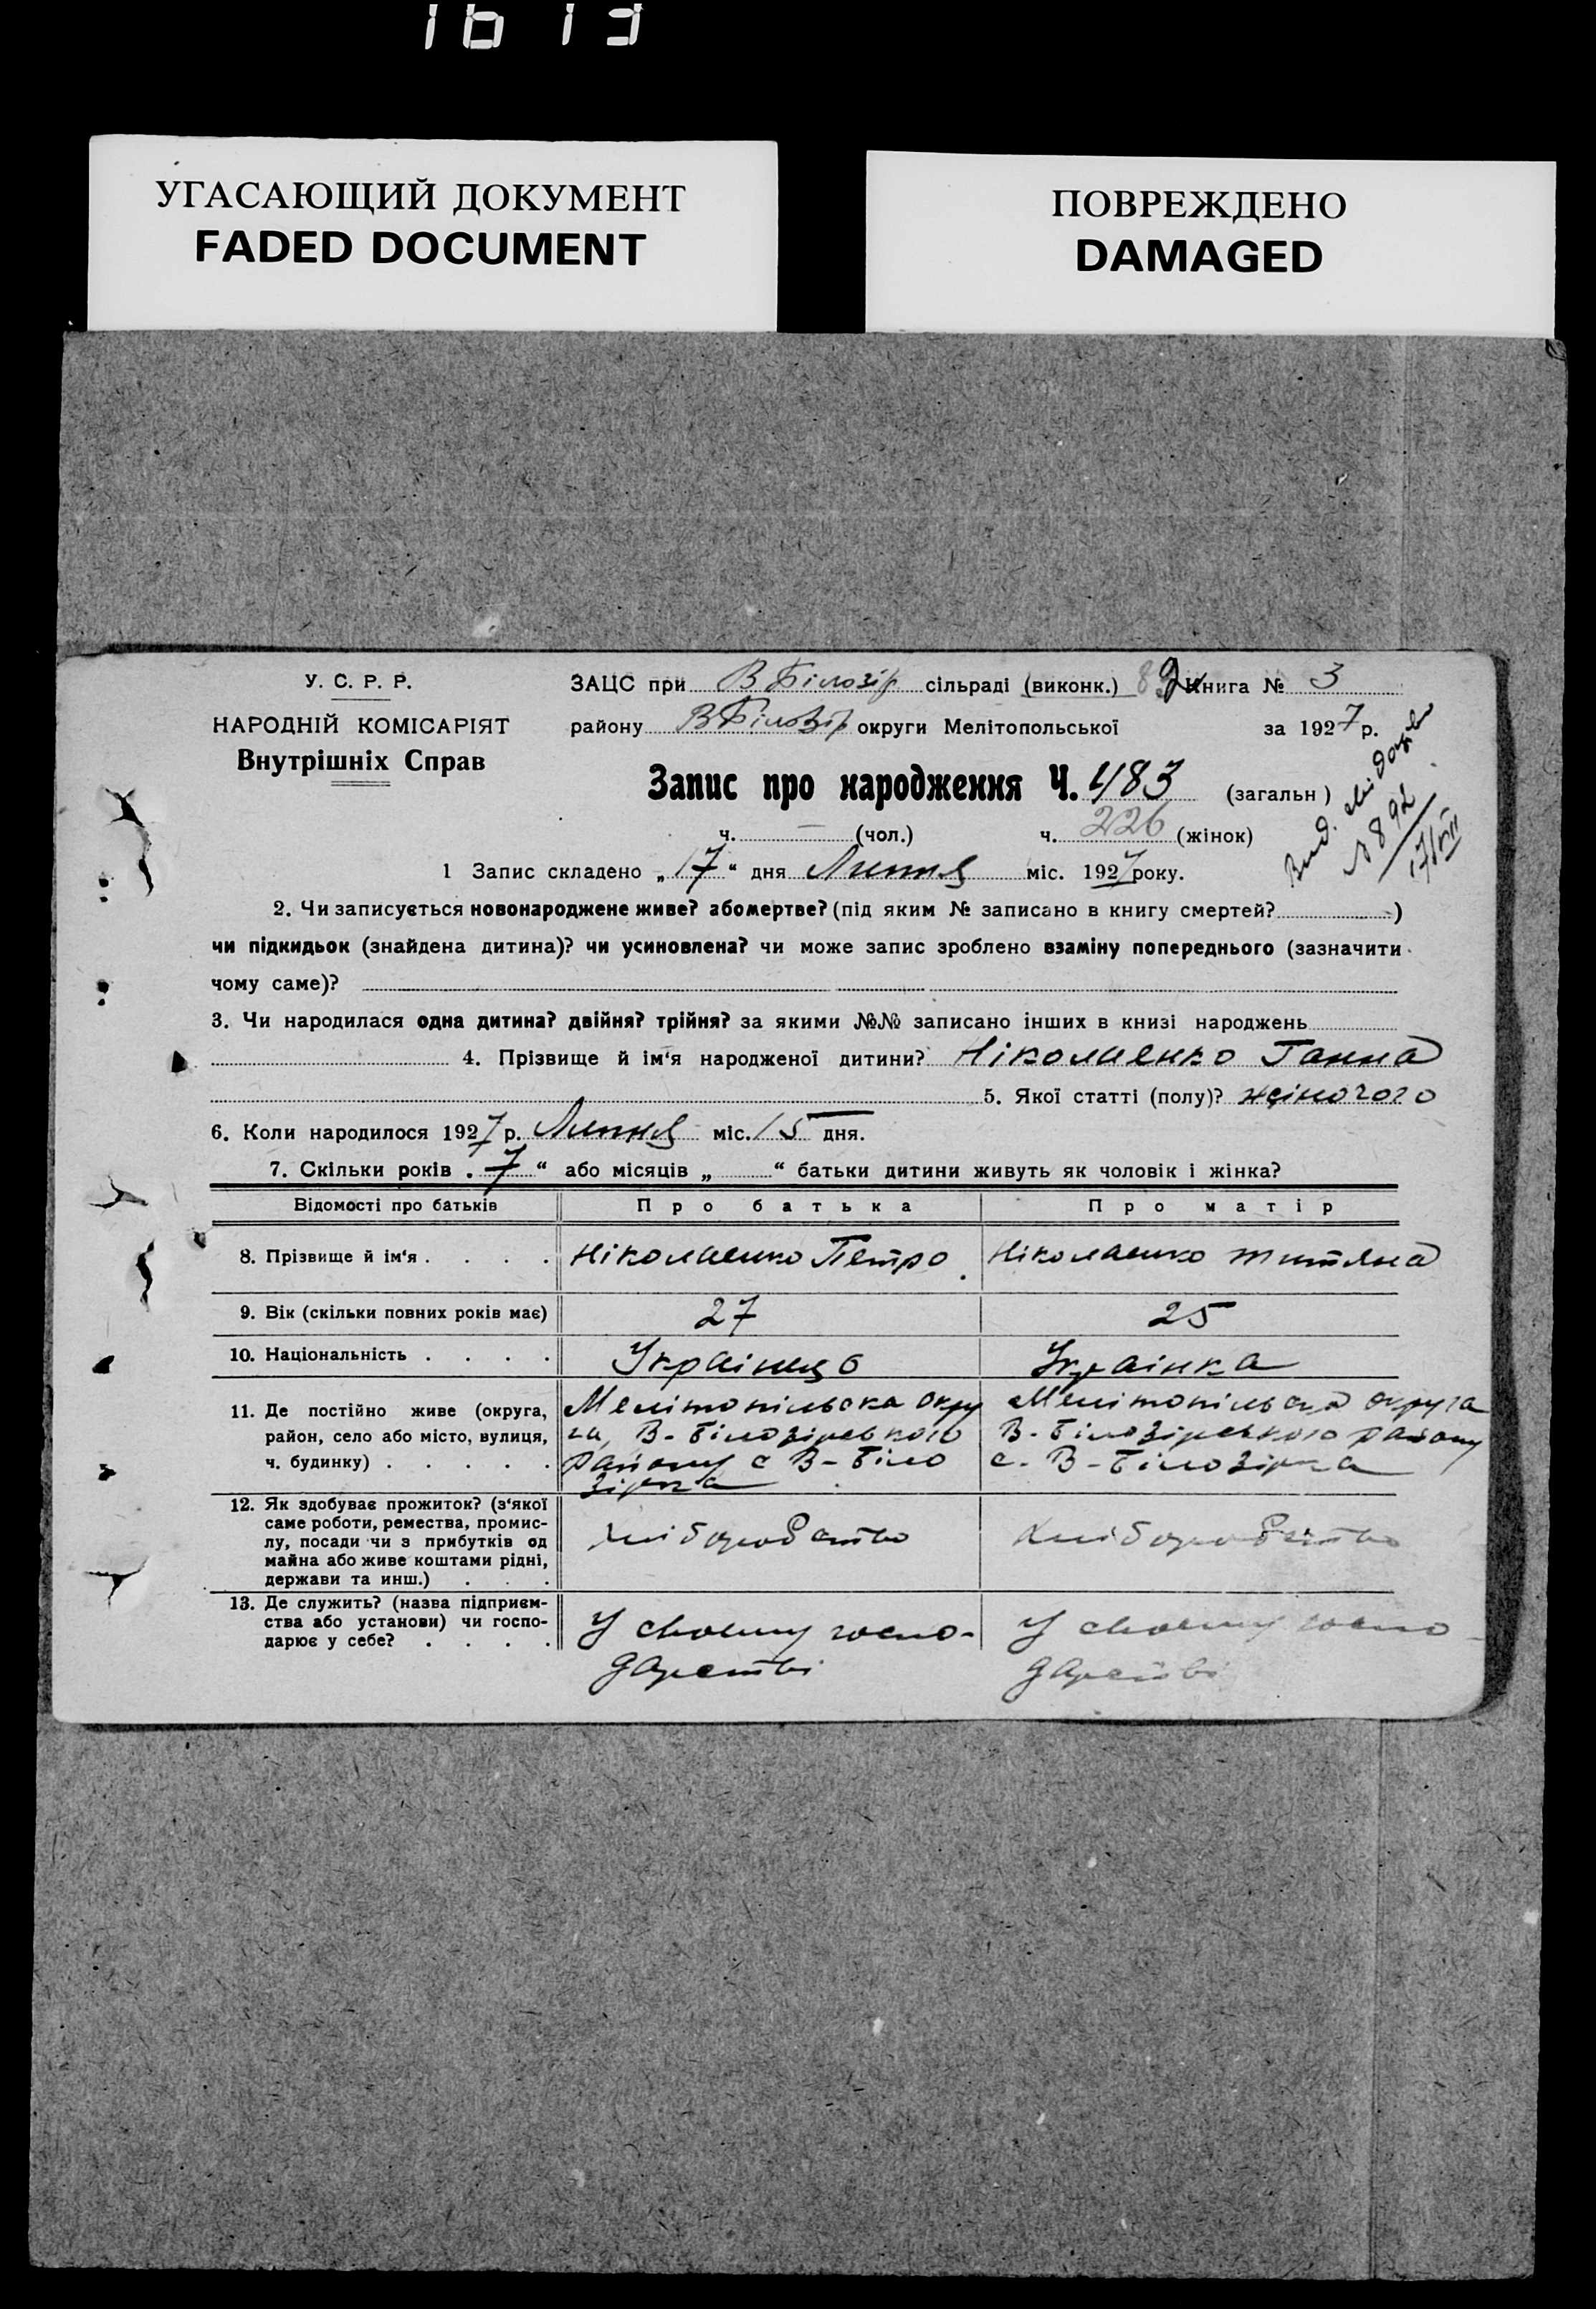 1613
УГАСАЮЩИЙ ДОКУМЕНТ
FADED DOCUMENT
ПОВРЕЖДЕНО
DAMAGED
У. С. Р. Р.
НАРОДНІЙ КОМІСАРІЯТ
Внутрішніх Справ
ЗАЦС при В Білозір сільраді (виконк.) Книга № 3
району ВБілозір округи Мелітопольської за 1927 р.
Запис про народження Ч. 483 (загальн)
ч. — (чол.) ч. 226 (жінок)
Вид. свідоцтво
№ 892
17/VII
1 Запис складено „17“ дня Липня міс. 1927 року.
2. Чи записується новонароджене живе? або мертве? (під яким № записано в книгу смертей? )
чи підкидьок (знайдена дитина)? чи усиновлена? чи може запис зроблено взаміну попереднього (зазначити
чому саме)?
3. Чи народилася одна дитина? двійня? трійня? за якими №№ записано інших в книзі народжень
4. Прізвище й ім‘я народженої дитини? Ніколаенко Ганна
5. Якої статті (полу)? жіночого
6. Коли народилося 1927 р. Липня міс. 15 дня.
7. Скільки років „7“ або місяців „ “ батьки дитини живуть як чоловік і жінка?
Відомості про батьків Про батька Про матір
8. Прізвище й ім‘я . . . . Ніколаенко Петро Ніколаенко Титяна
9. Вік (скільки повних років має) 27 25
10. Національність . . . . Українець Українка
11. Де постійно живе (округа, Мелітопільска окру Мелітопільска округа
район, село або місто, вулиця, га, В-Білозірського В-Білозірського району
ч. будинку) . . . . . району с В-Біло с. В-Білозірка
зірка
12. Як здобуває прожиток? (з‘якої
саме роботи, ремества, промис-
лу, посади чи з прибутків од хліборобство хліборобство
майна або живе коштами рідні,
держави та инш.) . . .
13. Де служить? (назва підприєм-
ства або установи) чи госпо- У своему госпо- У своему госпо-
дарює у себе? . . . . дарстві дарстві